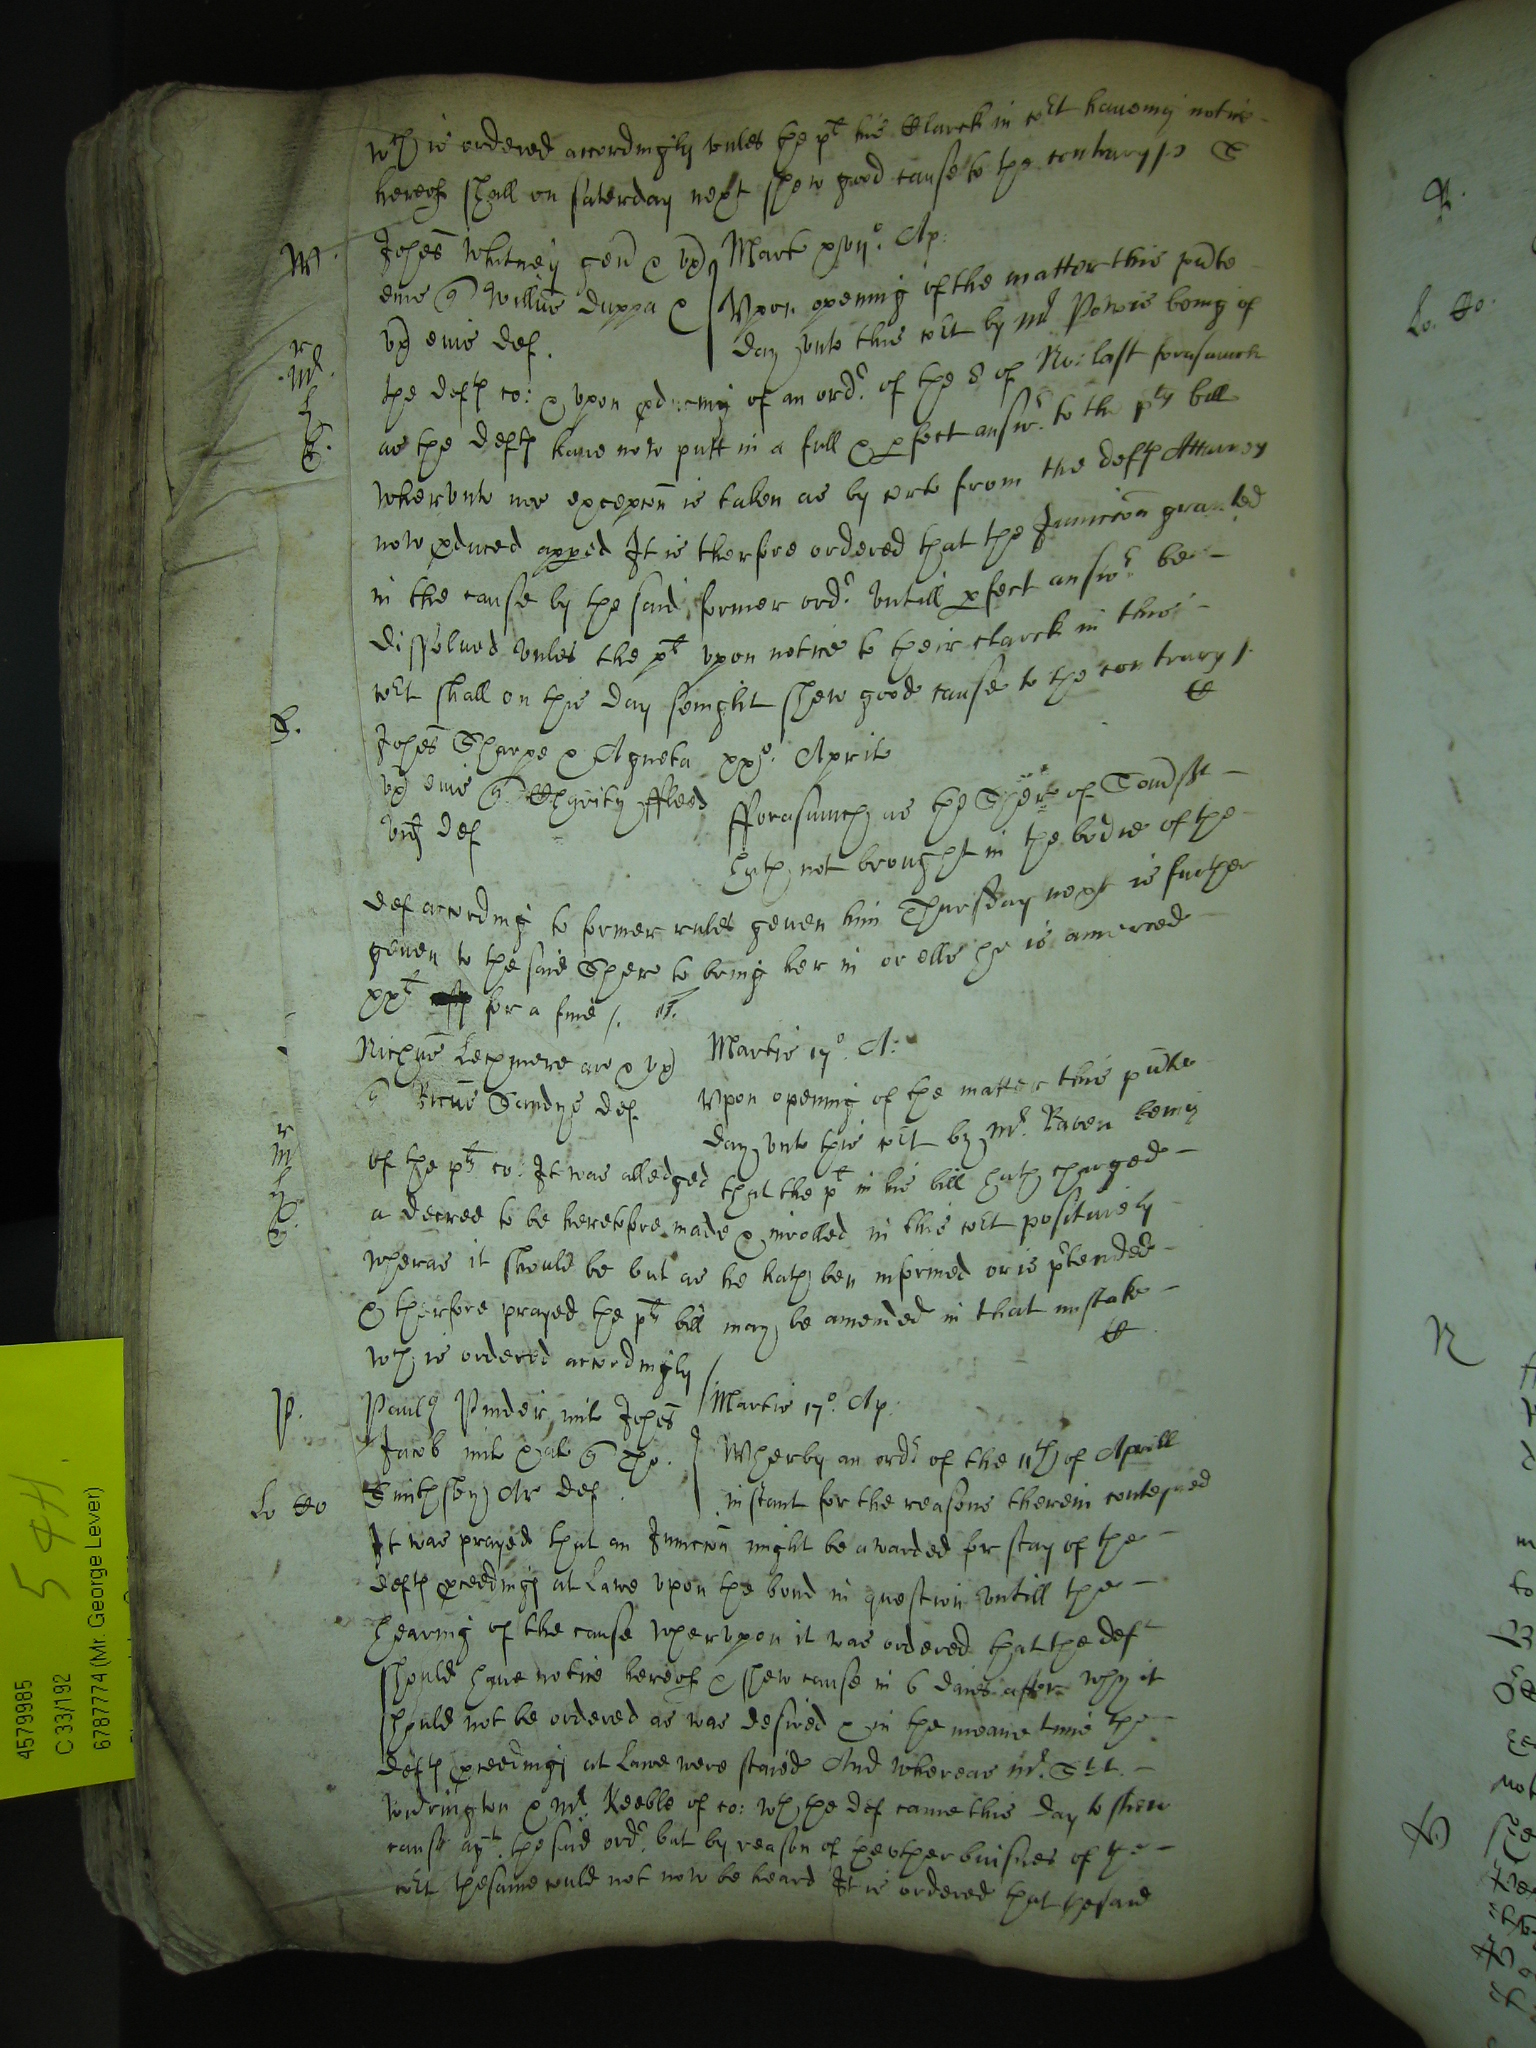 wch is ordered accordingly unles the plt his Clarck in cort haveing notice
hereof shall on Saterday next shew good cause to the contrary
W.
Johes Whitney gen & ux
Mart xvijo. Ap:
eius q Willus Duppa &
Upon opening of the matter this pnte
ux eius def.
day unto this cort by Mr Powis being of
the defts co: & upon pducing of an ordr of the 8 of No: last forasmuch
as the defts have now putt in a full & pfect answr to the plts bill
wherunto noe excepcon is taken as by certe from the defts Attorney
now pduced apped It is therfore ordered that the Iniuccon granted
in the cause by the said former ordr untill pfect answr be
dissolued unles the plt upon notice to their clarck in this
cort shall on this day sevnight shew good cause to the contrary
S.
Johes Sharpe & Agneta
xxo. Aprilis
ux eius q Charity fflee
fforasmuch as the Sher of Somst
vid def
hath not brought in the bodie of the
def according to former rules geven him Thursday next is further
geven to the said Sher to bring her in or ells he is amerced
xxl for a fine
Nichus Lechmere ar & ux
Martis 17o. A:
q Sandys def.
Upon opening of the matter this pnte
day unto this cort by Mr. Baven being
of the plts co: It was alledged that the plt in his bill hath charged
a decree to be heretofore made & inrolled in this cort positively
wheras it should be but as he hath ben informed or is ptended
& therfore prayed the plts bill may be amended in that mistake
wch is ordered accordingly
P.
Paulq Pinder mil Johes
Martis 17o. Ap:
Jacob mil & al q Tho.
Wherby an ordr of the 11th of Aprill
Lo Co
Smithsby Ar def.
instant for the reasons therein conteyned
It was prayed that an Iniuccon might be awarded for stay of the
defts pceedings at Lawe upon the bond in question untill the
hearing of the cause wherupon it was ordered that the deft
should have notice hereof & shew cause in 6 daies after why it
should not be ordered as was desired & in the meane time the
defts pceedings at Lawe were staied And whereas Mr. Srt.
Widrington & Mr. Keeble of co: wth the def came this day to shew
cause agt. the said ordr. but by reason of the other buisnes of the
cort the same could not now be heard It is ordered that the said
4579985
C 33/192
6787774 (Mr. George Lever)
R.
Lo. Co.
N